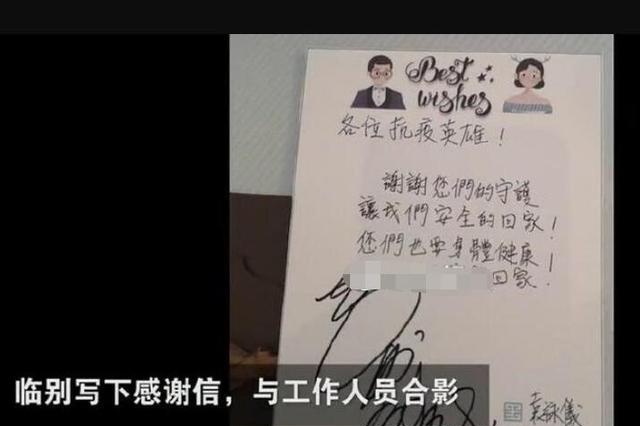 Best
wishes
各位抗疫英雄！
謝謝您們的守護
讓我們安全的回家！
您們也要身體健康！
回家！
袁詠儀
临别写下感谢信，与工作人员合影